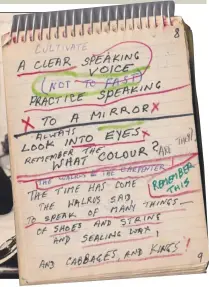 8
CULTIVATE
A CLEAR SPEAKING
VOICE
(NOT TO FAST)
PRACTICE SPEAKING
X TO A MIRROR X
ALWAYS
LOOK INTO EYES X
REMEMBER THE
WHAT COLOUR? ARE THEY?
THE WALRUS & THE CARPENTER
THE TIME HAS COME
THE WALRUS SAD,
REMEMBER THIS
TO SPEAK OF MANY THINGS—
OF SHOES AND STRING
AND SEALING WAX,
AND CABBAGES, AND KINGS!
9